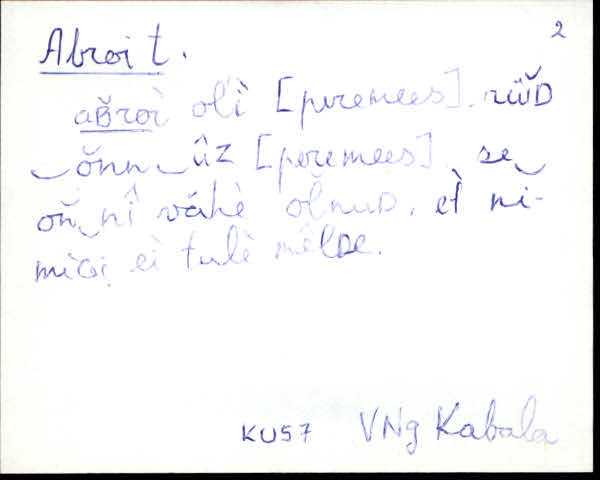 2
Abroi t.
aB̆roì ol'ì [peremees]. nüü̆D
‿ŏnn‿ûz [peremees]. se‿
oň‿nî váhè oĺnuD, et̀ nì-
mìGi eì tulè mêlDe.
KU57 VNg Kabala